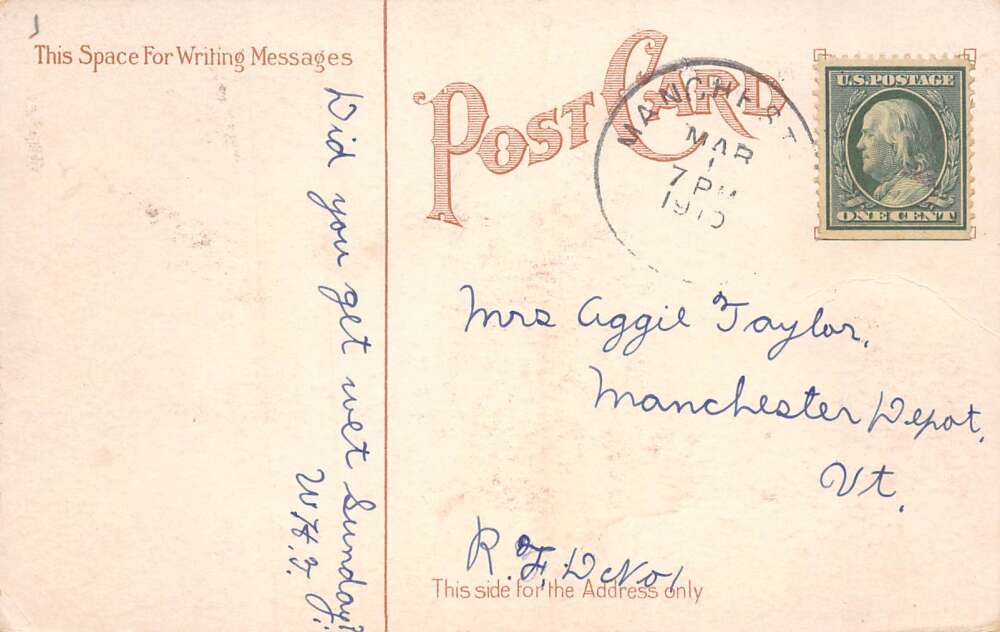 This Space For Writing Messages
Did you get wet Sunday?
W.H.T.
POST CARD
MANCHEST
MAR
1
7 PM
1910
U.S. POSTAGE
ONE CENT
Mrs Aggie Taylor,
Manchester Depot,
Vt,
R.F.D No 1
This side for the Address only